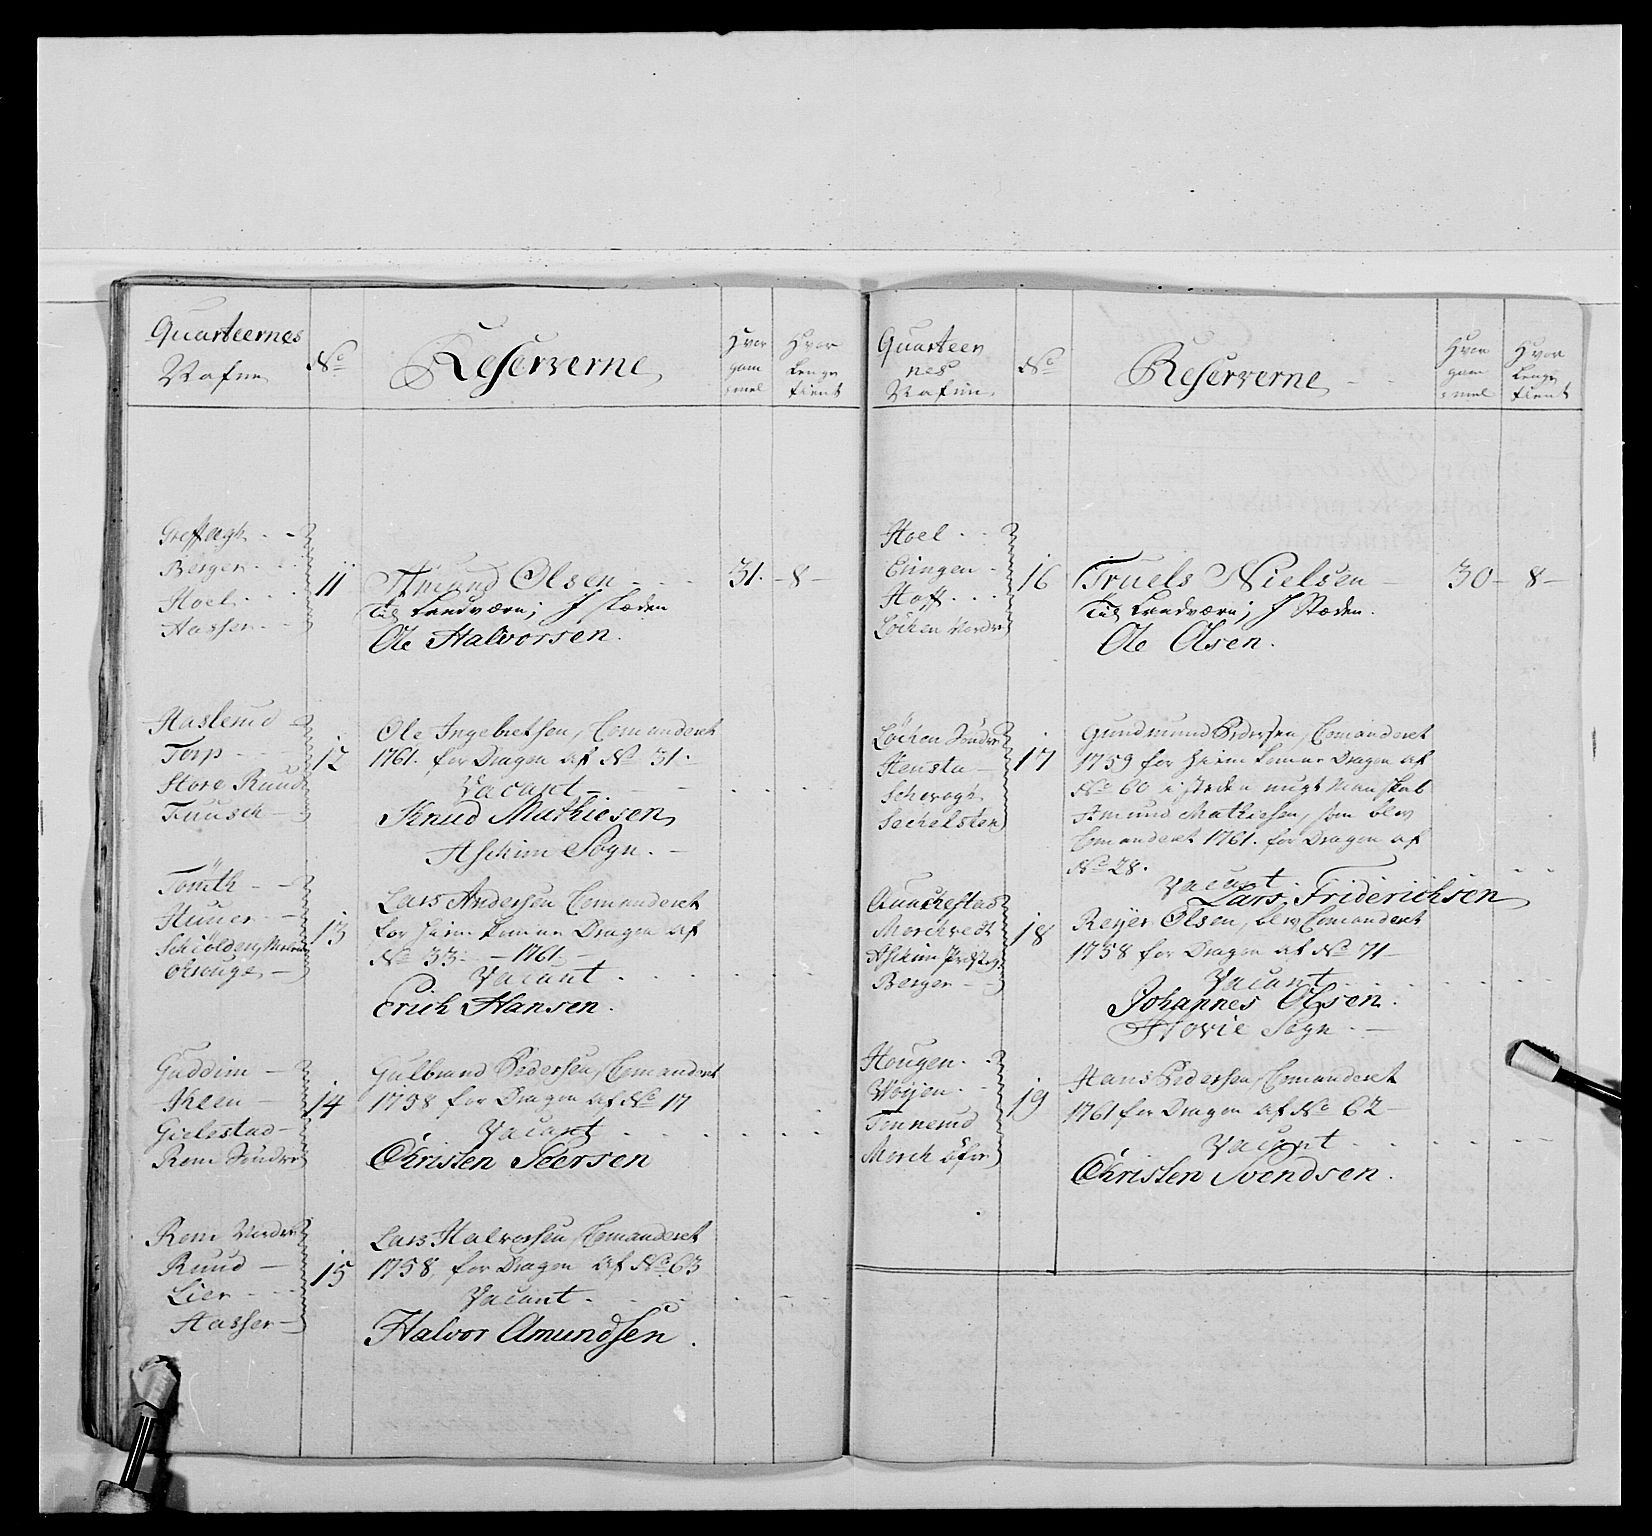 Quarteernes
Nafne
No
Reserverne
Hvor
gam
mel
Hvor
lenge
tient
Greffsegh
Berger
Hoel
Hasser
11
Amund Olsen
31. 8
Til Landværn; J stæden
Ole Halvorsen.
Haslerud
Torp
Store Ruud
Tuusch
12
Ole Ingebretsen, Comanderet
1761. for Dragon af No 31.
Vacant
Knud Mathiesen
Aschim Sogn.
Tomth
Huuer
13
Lars Andersen Comanderet
for hiemkomne Dragon af
No 33. 1761.
Vacant
Erich Hansen.
Gaddim
Kleen
Gielestad
Rom Søndre
14
Gulbrand Pedersen, Comanderet
1758 for Dragon af No 17
Vacant
Christen Peersen
Rom Nordre
Ruud
Lier
Hasser
15
Lars Halvorsen, Comanderet
1758, for Dragon af No. 63
Vacant
Halvor Amundsen.
Quarteer
nes
Nafne
No
Reserverne
Hvor
gam
mel
Hvor
lenge
tient
Hoel
Eningen
Hoff
Løchen Nordre
16
Truels Nielsen
30 8
Til Landværn; J Stæden.
Ole Olsen.
Løchen Søndre
Stensta
Schvogh
Sechelsten
17
Gundmund Pedersen, Comanderet
1759 for hiemkomne Dragon af
No 60 i steden nygt Manskab
Amund Mathiesen, som blev
Comanderet 1761. for Dragon af
No 28.
Vacant.
Lars Friderichsen
Morchvedt
Aschim Præstg.
Berger
18
Reyer Olsen, blev Comanderet
1758 for Dragon af No 71
Vacant
Johannes Olsen.
Hovie Sogn.
Hougen
Woyen
Tennerud
Morch øfre
19
Hans Pedersen, Comanderet
1761 for Dragon af No 62
Vacant
Christen Svendsen.